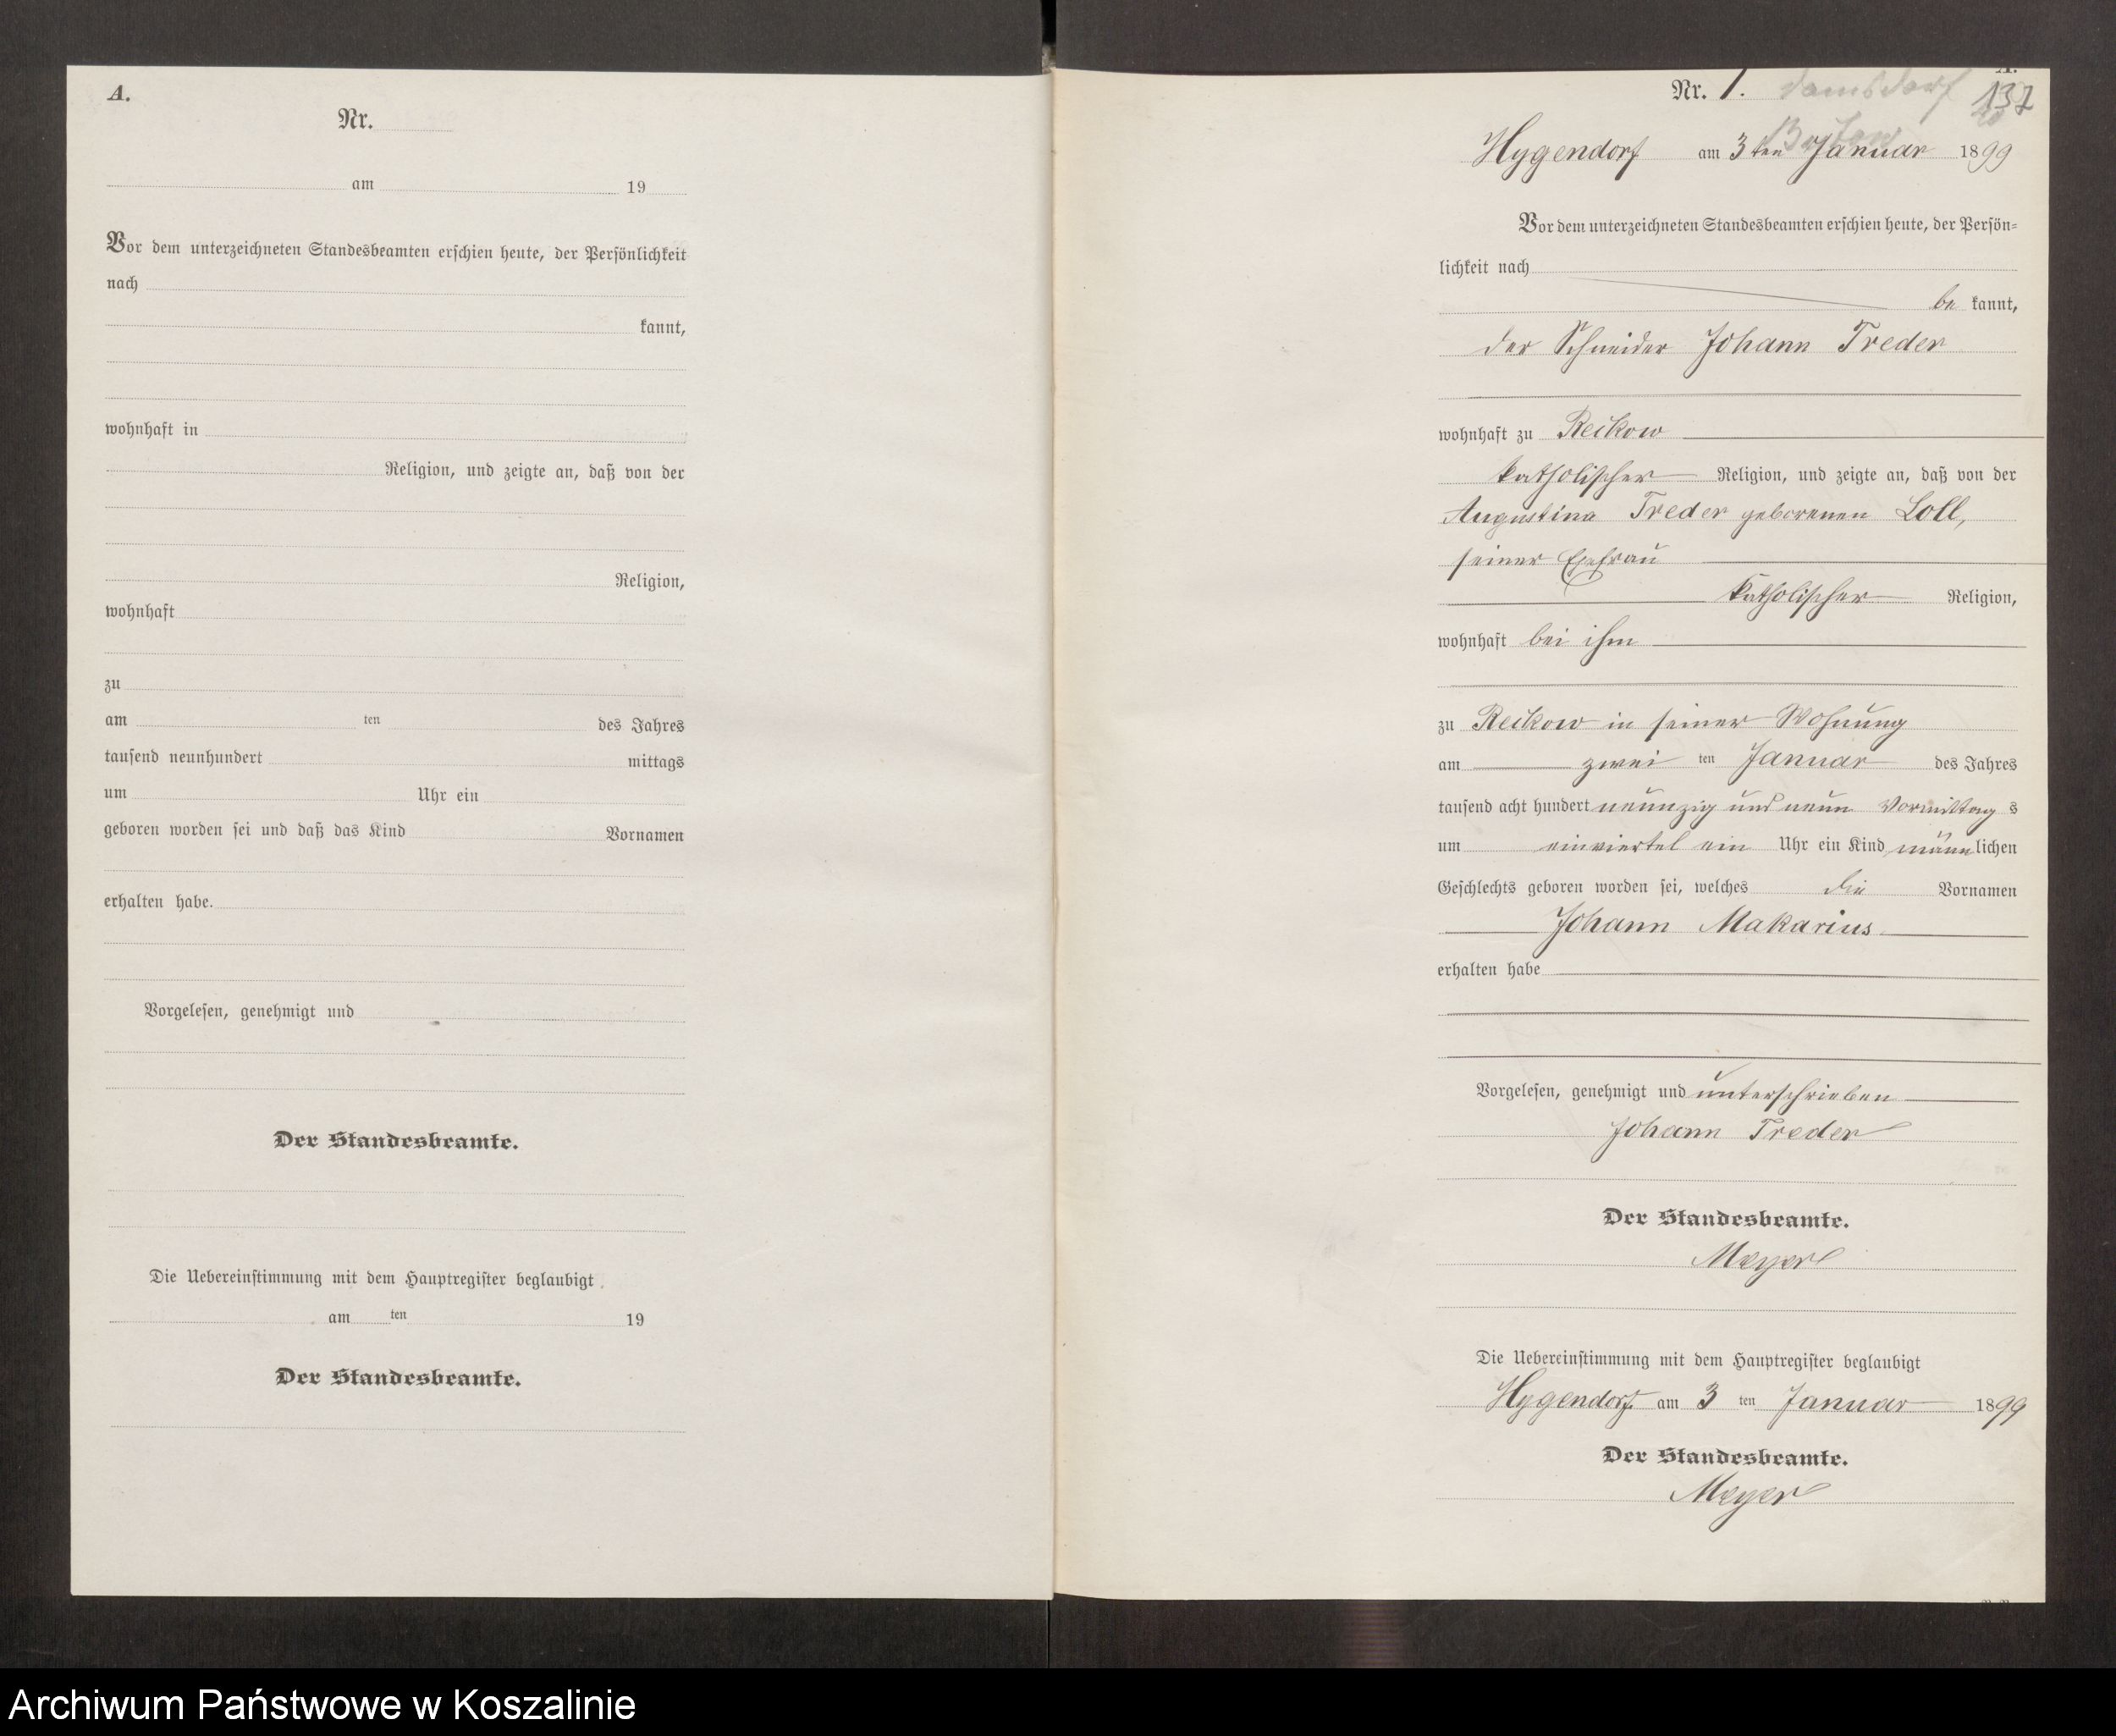 A.
Nr.
am 19
Vor dem unterzeichneten Standesbeamten erschien heute, der Persönlichkeit
nach
kannt,
wohnhaft in
Religion, und zeigte an, daß von der
Religion,
wohnhaft
zu
am ten des Jahres
tausend neunhundert mittags
um Uhr ein
geboren worden sei und daß das Kind Vornamen
erhalten habe.
Vorgelesen, genehmigt und
Der Standesbeamte.
Die Uebereinstimmung mit dem Hauptregister beglaubigt
am ten 19
Der Standesbeamte.
A.
Nr. 1. Damsdorf 137
Hygendorf am 3ten Januar 1899
Vor dem unterzeichneten Standesbeamten erschien heute, der Persön=
lichkeit nach
be kannt,
der Schneider Johann Treder
wohnhaft zu Reckow
katholischer Religion, und zeigte an, daß von der
Augustina Treder geborenen Loll,
seiner Ehefrau
katholischer Religion,
wohnhaft bei ihm
zu Reckow in seiner Wohnung
am zwei ten Januar des Jahres
tausend acht hundert neunzig und neun Vormittag s
um einviertel ein Uhr ein Kind männlichen
Geschlechts geboren worden sei, welches die Vornamen
Johann Makarius
erhalten habe
Vorgelesen, genehmigt und unterschrieben
Johann Treder
Der Standesbeamte.
Meyer
Die Uebereinstimmung mit dem Hauptregister beglaubigt
Hygendorf am 3 ten Januar 1899
Der Standesbeamte.
Meyer
Archiwum Państwowe w Koszalinie